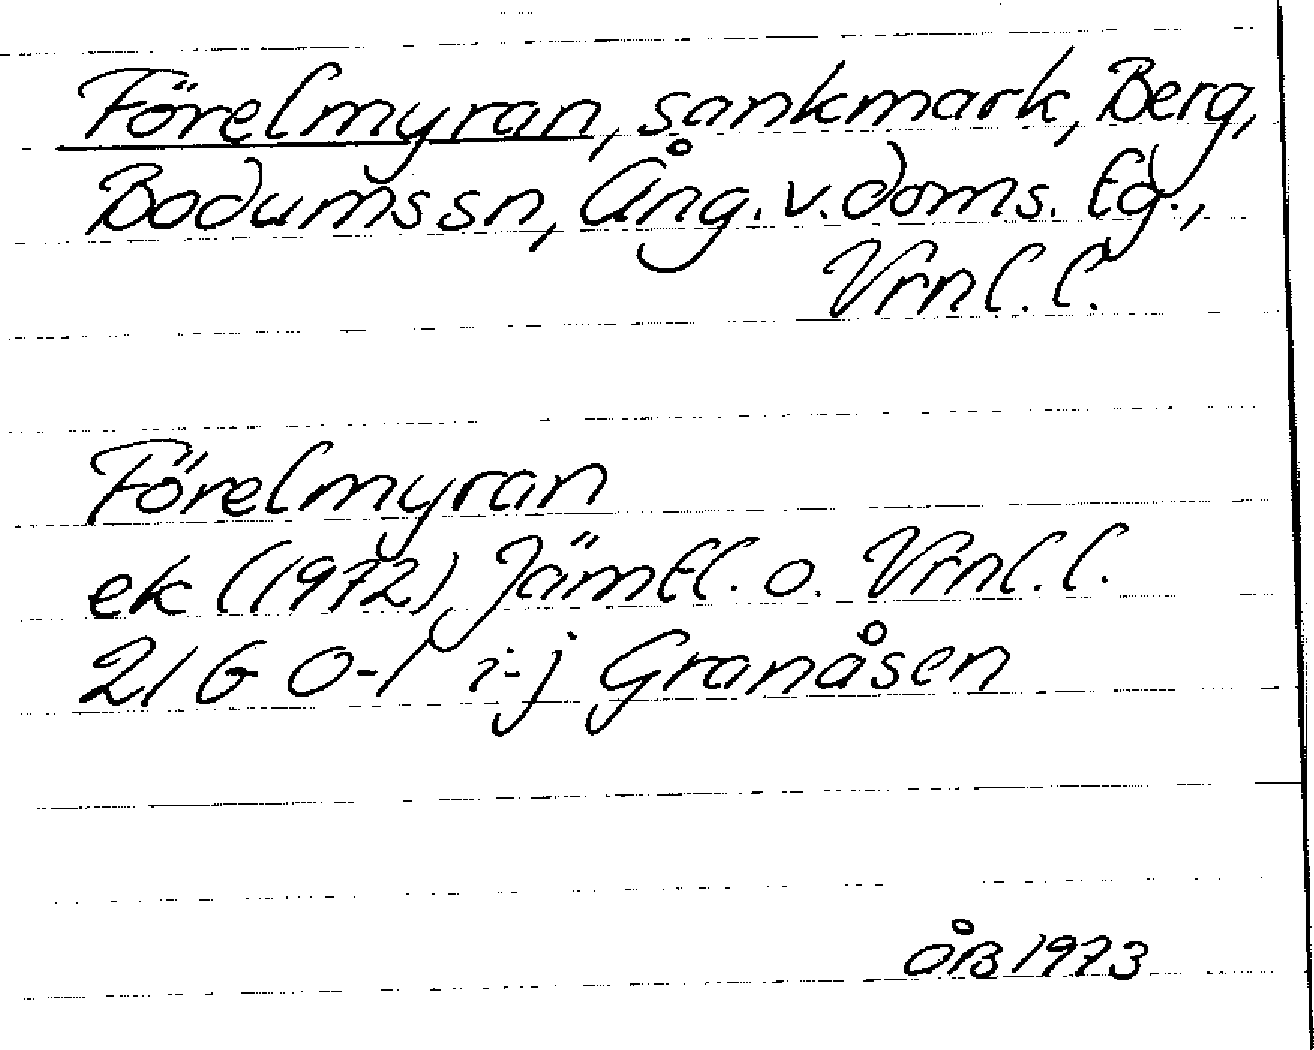 Förelmyran, sankmark, Berg,
Bodumssn, Ång. v. doms. tg.,
Vrnl. l.
Förelmyran
ek (1972), Jämtl. o. Vrnl. l.
21G 0-1 i-j Granåsen
ÅB 1973